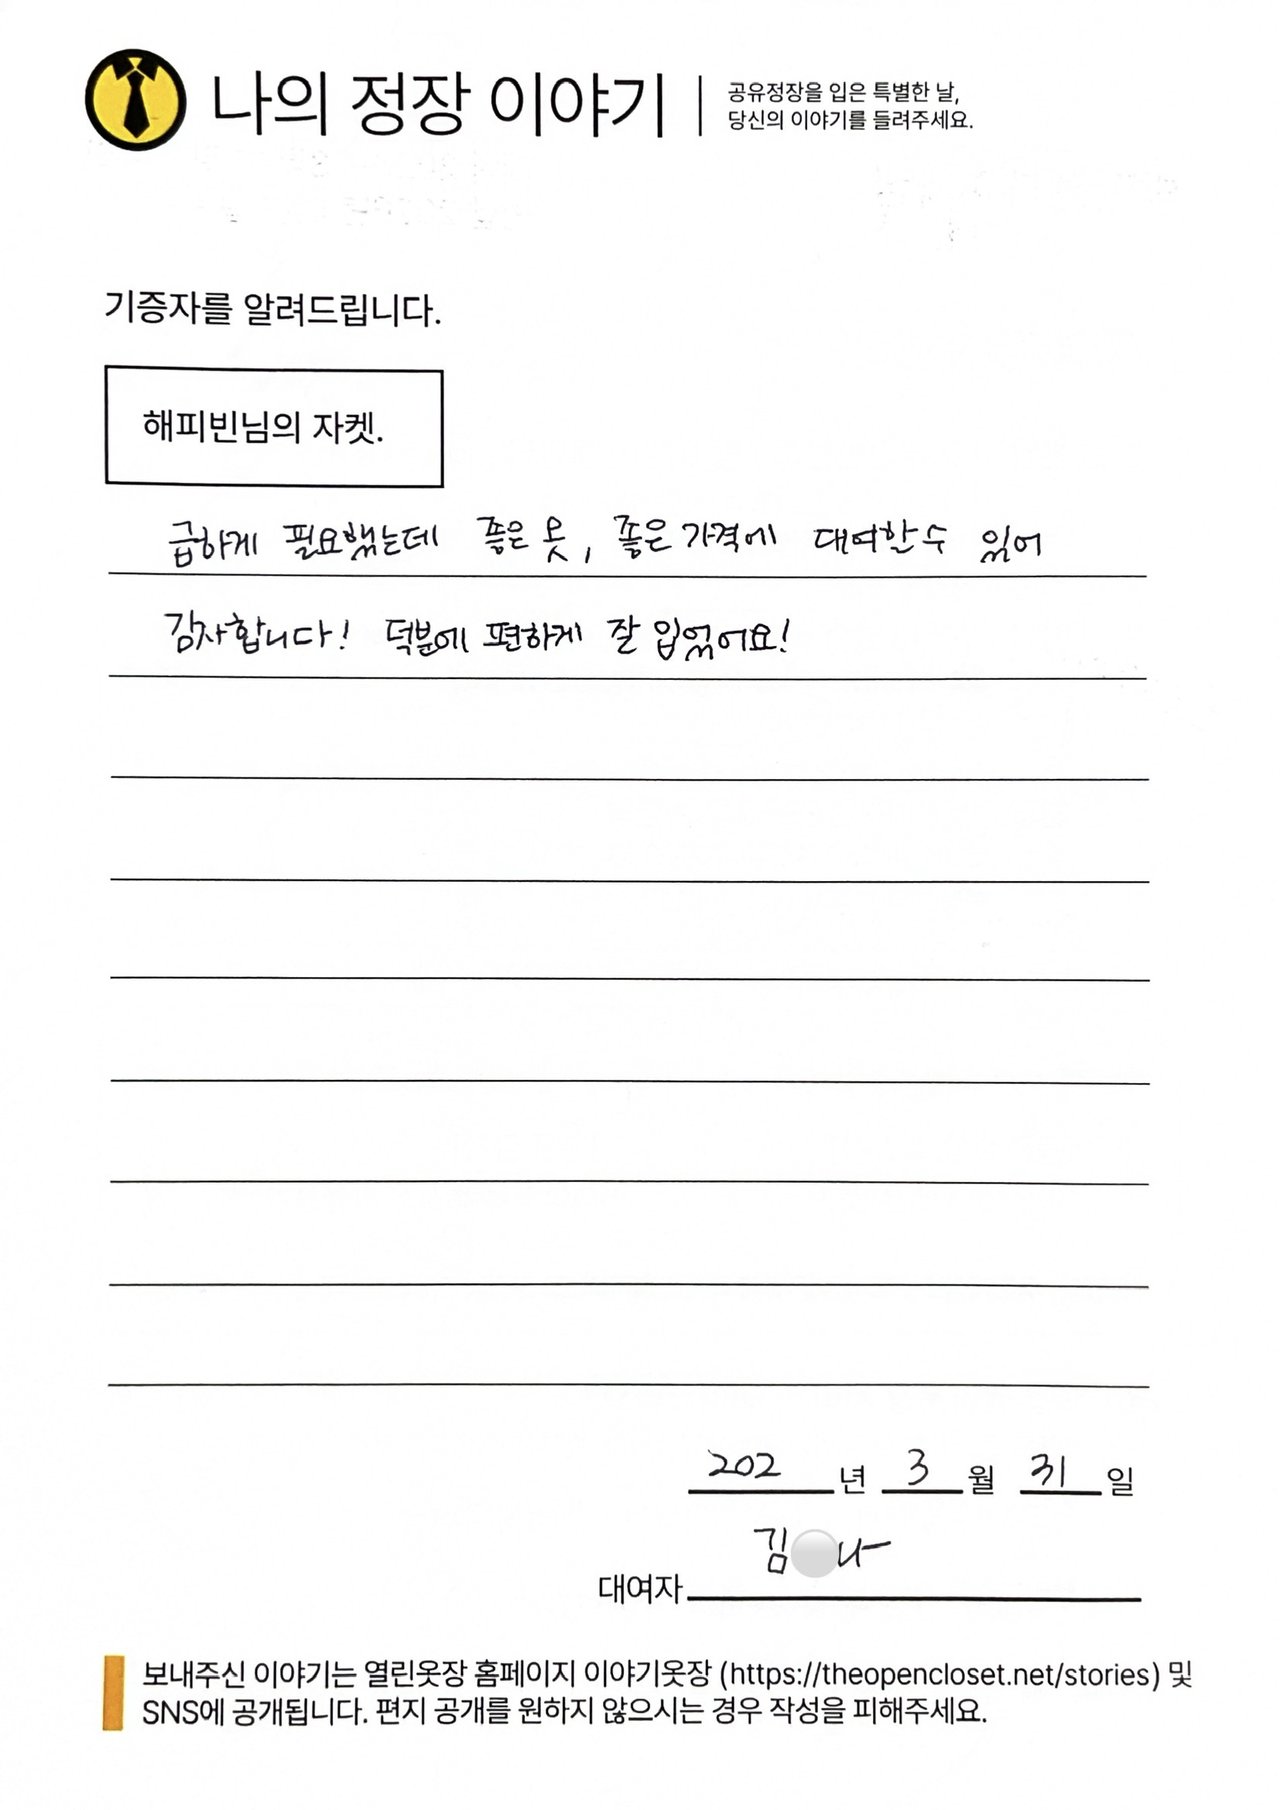 나의 정장 이야기
공유정장을 입은 특별한 날,
당신의 이야기를 들려주세요.
기증자를 알려드립니다.
해피빈님의 자켓.
급하게 필요했는데 좋은 옷, 좋은 가격에 대여할 수 있어
감사합니다! 덕분에 편하게 잘 입었어요!
202 년 3 월 31 일
김 나
대여자
보내주신 이야기는 열린옷장 홈페이지 이야기옷장 (https://theopencloset.net/stories) 및
SNS에 공개됩니다. 편지 공개를 원하지 않으시는 경우 작성을 피해주세요.